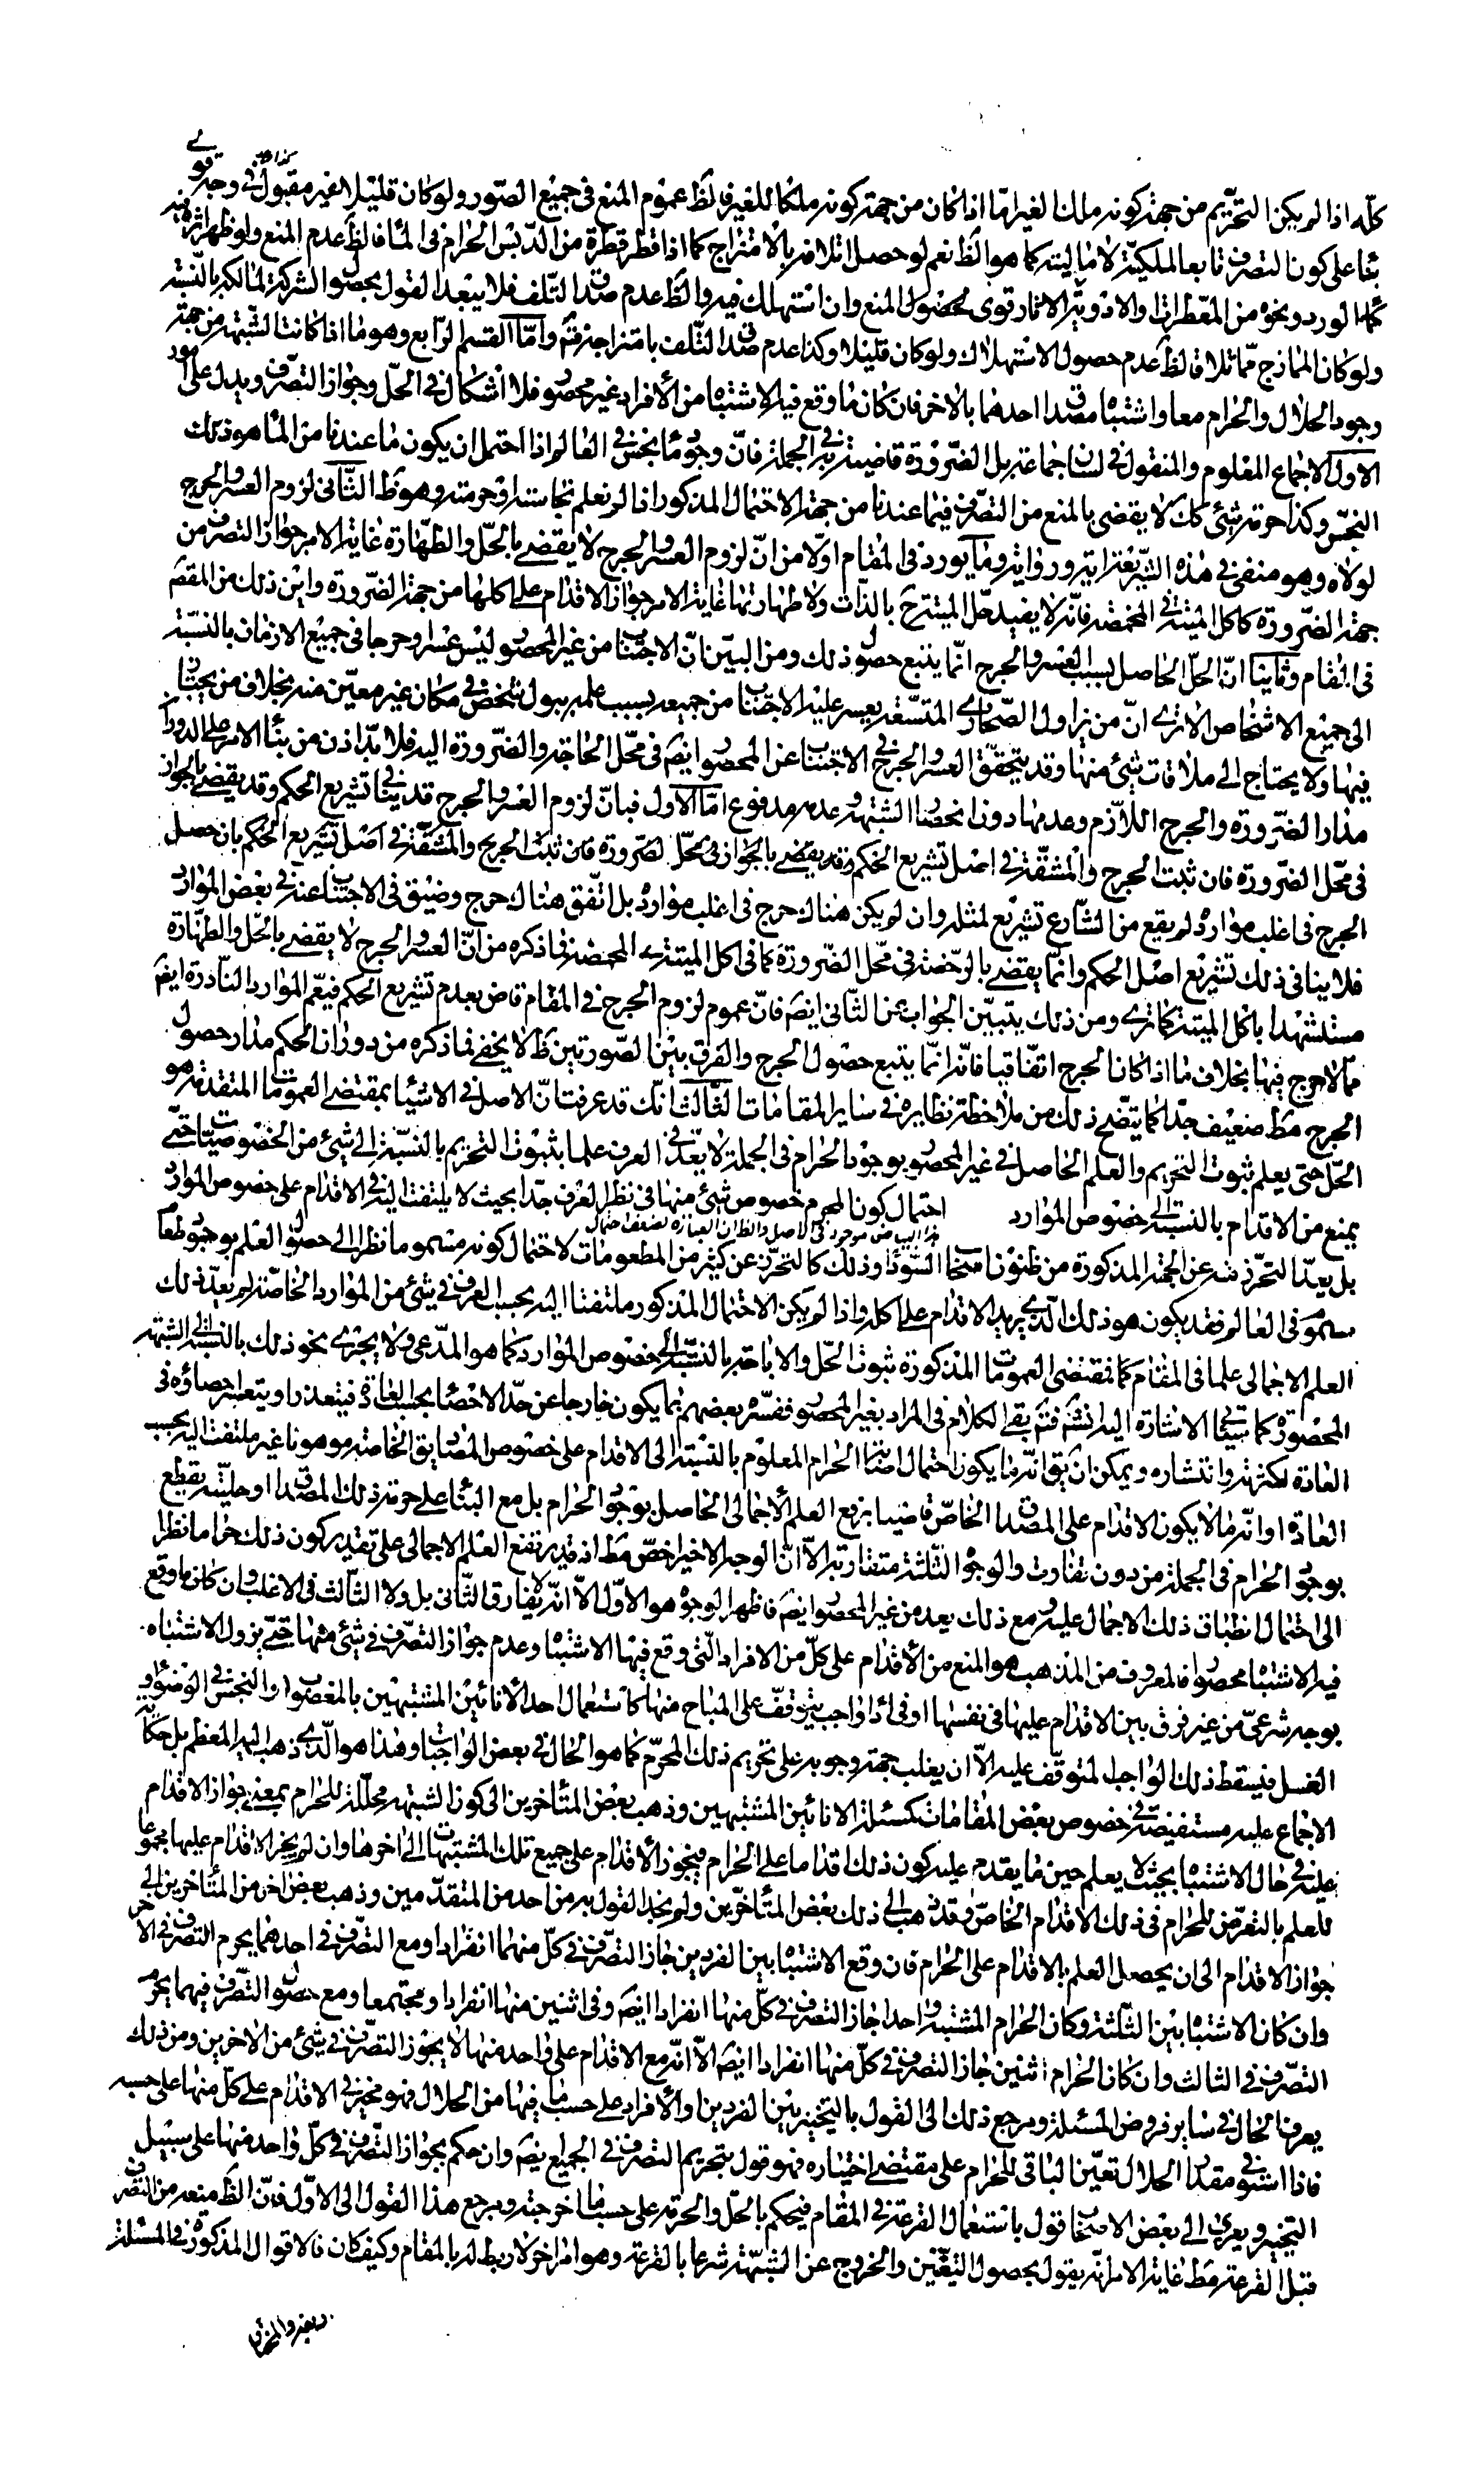 كلّه اذا لم يكن التحريم من جهة كونه ملك الغير امّا اذا كان من جهة كونه ملكا للغير فالظ عموم المنع فى جميع الصّور ولو كان قليلا غير مقبول فى وجه قوى
بناء على كون التصرف تابعا للملكيّة لا ماليته كما هو الظ نعم لو حصل اتلافه بالامتزاج كما اذا قطر قطرة من الدّبس الحرام فى الماء فالظ عدم المنع ولو ظهر اثره فيه
كماء الورد ونحوه من المعطرات والادوية الاثمار قوى حصول المنع وان استهلك فيه والظ عدم صدق التّلف فلا يبعد القول بحصول الشركة لمالكه بالنّسبة
ولو كان الممازج مماثلا فالظ عدم حصول الاستهلاك ولو كان قليلا وكذا عدم صدق التّلف بامتزاجه فتم وامّا القسم الرّابع وهو ما اذا كانت الشّبهة من جهة
وجود الحلال والحرام معا واشتباه مصداق احدهما بالاخر فان كان ما وقع فيه الاشتباه من الأفراد غير محصور فلا اشكال فى الحلّ وجواز التصرّف ويدل عليه امور
الاول الاجماع المعلوم والمنقول فى لسان جماعة بل الضّرورة قاضية به فى الجملة فانّ وجود ماء نجس فى العالم اذا احتمل ان يكون ما عندنا من الماء هو ذلك
النجس وكذا حرمة شئ كك لا يقضى بالمنع من التصرّف فيما عندنا من جهة الاحتمال المذكور اذا لم نعلم نجاسته او حرمته وهو ظ الثّانى لزوم العسر والحرج
لولاه وهو منفى فى هذه الشّريعة اية ورواية وما يورد فى المقام اوّلا من انّ لزوم العسر والحرج لا يقضى بالحلّ والطّهارة غاية الامر جواز التصرف من
جهة الضّرورة كاكل الميتة فى المخمصة فانّه لا يفيد حلّ الميتة ح بالذّات ولا طهارتها غاية الامر جواز الاقدام على اكلها من جهة الضّرورة واين ذلك من المقصد
فى المقام وثانيا انّ الحلّ الحاصل بسبب العسر والحرج انّما يتبع حصول ذلك ومن البيّن انّ الاجتناب من غير المحصور ليس عسرا وحرجا فى جميع الازمان بالنّسبة
الى جميع الاشخاص الا ترى انّ من يزاول الصّحارى المتسّعة يعسر عليه الاجتناب من جميعه بسبب علمه ببول شخص فى مكان غير معيّن منه بخلاف من يجتاز
فيها ولا يحتاج الى ملاقات شئ منها وقد يتحقّق العسر والحرج فى الاجتناب عن المحصور ايضا فى محلّ الحاجة والضّرورة اليه فلا بدّ اذن من بناء الامر على الدوران
مدار الضّرورة والحرج اللازم وعدمها دون انحصار الشبهة وعدمه مدفوع امّا الاوّل فبانّ لزوم العسر والحرج قد ينافى تشريع الحكم وقد يقضى بالجواز
فى محلّ الضّرورة فان ثبت الحرج والمشقّة فى اصل تشريع الحكم وقد يقضى بالجواز فى محلّ الضّرورة فان ثبت الحرج والمشقّة فى اصل تشريع الحكم بان حصل
الحرج فى اغلب موارده لم يقع من الشّارع تشريع لمثله وان لم يكن هناك حرج فى اغلب موارده بل اتّفق هناك حرج وضيق فى الاجتناب عنه فى بعض الموارد
فلا ينافى ذلك تشريع اصل الحكم وانّما يقضى بالرّخصة فى محلّ الضّرورة كما فى اكل الميتة فى المخمصة فما ذكره من انّ العسر والحرج لا يقضى بالحلّ والطّهارة
مستشهدا باكل الميتة كما ترى ومن ذلك يتبيّن الجواب عن الثّانى ايضا فانّ عموم لزوم الحرج فى المقام قاض بعدم تشريع الحكم فيعمّ الموارد النّادرة ايضا
ممّا لا حرج فيها بخلاف ما اذا كان الحرج اتفّاقيا فانّه انّما يتبع حصول الحرج والفرق بين الصّورتين ظ لا يخفى فما ذكره من دوران الحكم مدار حصول
الحرج مط ضعيف جدّا كما يتّضح ذلك من ملاحظة نظايره فى ساير المقامات الثّالث انّك قد عرفت انّ الاصل فى الاشياء بمقتضى العمومات المتقدمة هو
الحلّ حتى يعلم ثبوت التحريم والعلم الحاصل فى غير المحصور بوجود الحرام فى الجملة لا يعدّ فى العرف علما بثبوت التحريم بالنّسبة الى شئ من الخصوصيّات حتّى
يمنع من الاقدام بالنسبة الى خصوص الموارد احتمال كون المحرم خصوص شئ منها فى نظر العرف جدّا بحيث لا يلتفت اليه فى الاقدام على خصوص الموارد
هذا البياض موجود فى الاصل والظ ان العبارة لضعف احتمال
بل يعدّ التحرّز عنه عن الجهة المذكورة من ظنون اصحاب السّوداء وذلك كالتحرّز عن كثير من المطعومات لاحتمال كونه مسموما نظرا الى حصول العلم بوجود طعام
مسموم فى العالم فقد يكون هو ذلك الّذى يريد الاقدام على اكله واذا لم يكن الاحتمال المذكور ملتفتا اليه بحسب العرف فى شئ من الموارد الخاصّة لم يعدّ ذلك
العلم الاجمالى علما فى المقام كما فمقتضى العمومات المذكورة ثبوت الحلّ والاباحة بالنّسبة الى خصوص الموارد كما هو المدّعى ولا يجرى نحو ذلك بالنّسبة الى الشبهة
المحصورة كما سيأتى الاشارة اليه انش فتم بقى الكلام فى المراد بغير المحصور ففسّره بعضهم بما يكون خارجا عن حدّ الاحصاء بحسب العادة فيتعذر او يتعسر احصاؤه فى
العادة لكثرته وانتشاره ويمكن ان يقال انّه ما يكون احتمال اصابة الحرام المعلوم بالنّسبة الى الاقدام على خصوص المصاديق الخاصة موهونا غير ملتفت اليه بحسب
العادة او انّه ما لا يكون الاقدام على المصداق الخاصّ قاضيا برفع العلم الأجمالى الحاصل بوجود الحرام بل مع البناء على حرمة ذلك المصداق او حليّته يقطع
بوجود الحرام فى الجملة من دون تفاوت والوجوه الثّلثة متقاربة الاّ انّ الوجه الاخير اخصّ مط اذ قد يرتفع العلم الاجمالى على تقدير كون ذلك حراما نظرا
الى احتمال انطباق ذلك الاجمال عليه ومع ذلك يعد من غير المحصور ايضا فاظهر الوجوه هو الاوّل الاّ انّه لا يفارق الثّانى بل ولا الثّالث فى الاغلب وان كان ما وقع
فيه الاشتباه محصورا فالمعروف من المذهب هو المنع من الأقدام على كلّ من الافراد الّتى وقع فيها الاشتباه وعدم جواز التصرّف فى شئ منها حتّى يزول الاشتباه
بوجه شرعىّ من غير فرق بين الاقدام عليها فى نفسها او فى اداء واجب يتوقّف على المباح منها كاستعمال احد الأنائين المشتبهين بالمغصوب او النجس فى الوضوء او
الغسل فيسقط ذلك الواجب المتوقّف عليه الاّ ان يغلب جهة وجوبه على تحريم ذلك المحرّم كما هو الحال فى بعض الواجبات وهذا هو الّذى ذهب اليه المعظم بل حكاية
الاجماع عليه مستفيضة فى خصوص بعض المقامات كمسئلة الانائين المشتبهين وذهب بعض المتأخرين الى كون الشبهة محلّلة للحرام بمعنى جواز الاقدام
عليه فى حال الاشتباه بحيث لا يعلم حين ما يقدم عليه كون ذلك اقداما على الحرام فيجوز الأقدام على جميع تلك المشتبهات الى اخرها وان لم يجز الاقدام عليها مجموعا
للعلم بالتعرّض للحرام فى ذلك الاقدام الخاصّ وقد ذهب الى ذلك بعض المتأخّرين ولم نجد القول به من احد من المتقدّمين وذهب بعض اخر من المتأخرين الى
جواز الاقدام الى ان يحصل العلم بالاقدام على الحرام فان وقع الاشتباه بين الفردين جاز التصّرف فى كلّ منهما انفرادا ومع التصّرف فى احدهما يحرم التصرّف فى الاخر
وان كان الاشتباه بين الثّلثة وكان الحرام المشتبه واحدا جاز التصرف فى كلّ منها انفرادا ايضا وفى اثنين منها انفرادا ومجتمعا ومع حصول التصّرف فيهما يحرم
التصّرف فى الثالث وان كان الحرام اثنين جاز التصرف فى كلّ منها انفرادا ايضا الاّ انّه مع الاقدام على واحد منها لا يجوز التصرّف فى شئ من الاخرين ومن ذلك
يعرف الحال فى ساير فروض المسئلة ويرجع ذلك الى القول بالتخيير بين الفردين والأفراد على حسب ما فيها من الحلال فهو مخيّر فى الاقدام على كلّ منها على حسبه
فاذا استوفى مقدار الحلال تعيّن الباقى للحرام على مقتضى اختياره فهو قول بتحريم التصرف فى الجميع ايضا وان حكم بجواز التصّرف فى كلّ واحد منها على سبيل
التخيير ويعزى الى بعض الاصحاب قول باستعمال القرعة فى المقام فيحكم بالحلّ والحرمة على حسب ما اخرجته ويرجع هذا القول الى الاوّل فانّ الظ منعه من التصرف
قبل القرعة مط غاية الامر انّه يقول بحصول التّعيّن والخروج عن الشبهة شرعا بالقرعة وهو امر اخر لا ربط له بالمقام وكيف كان فالاقوال المذكورة فى المسئلة